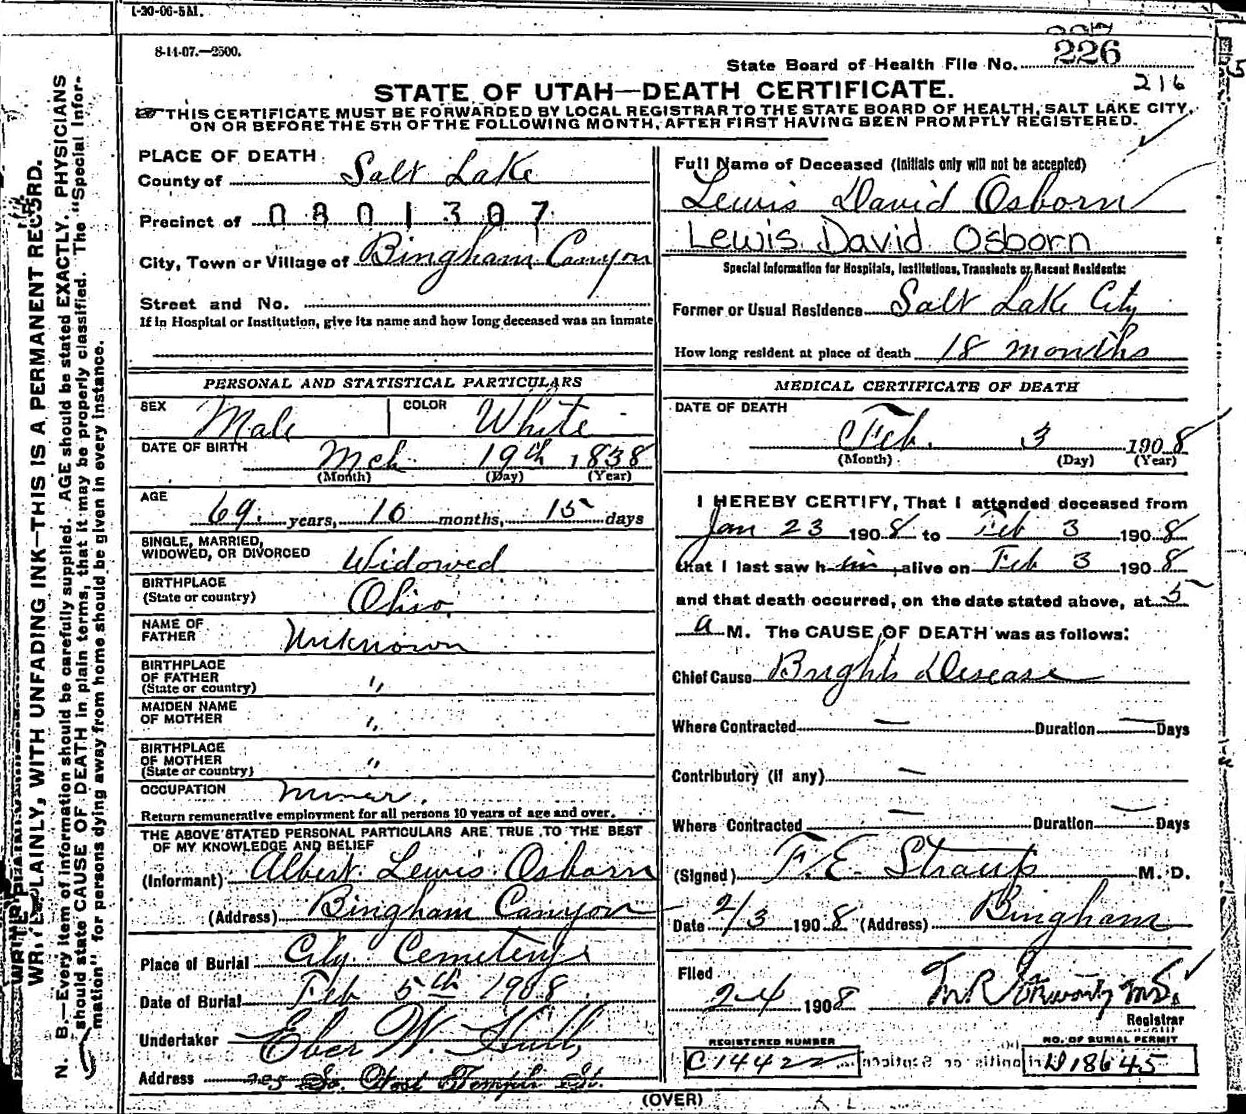 1-30-06-5M.
8-14-07.—2500.
State Board of Health File No. 226
216
STATE OF UTAH—DEATH CERTIFICATE.
THIS CERTIFICATE MUST BE FORWARDED BY LOCAL REGISTRAR TO THE STATE BOARD OF HEALTH, SALT LAKE CITY,
ON OR BEFORE THE 5TH OF THE FOLLOWING MONTH, AFTER FIRST HAVING BEEN PROMPTLY REGISTERED.
PLACE OF DEATH
County of Salt Lake
Precinct of 0801307
City, Town or Village of Bingham Canyon
Street and No.
If in Hospital or Institution, give its name and how long deceased was an inmate
PERSONAL AND STATISTICAL PARTICULARS
SEX Male COLOR White
DATE OF BIRTH Mch 19th 1838
(Month) (Day) (Year)
AGE
69 years, 10 months, 15 days
SINGLE, MARRIED,
WIDOWED, OR DIVORCED Widowed
BIRTHPLACE
(State or country) Ohio
NAME OF
FATHER Unknown
BIRTHPLACE
OF FATHER
(State or country) "
MAIDEN NAME
OF MOTHER "
BIRTHPLACE
OF MOTHER
(State or country) "
OCCUPATION Miner.
Return remunerative employment for all persons 10 years of age and over.
THE ABOVE STATED PERSONAL PARTICULARS ARE TRUE TO THE BEST
OF MY KNOWLEDGE AND BELIEF
(Informant) Albert Lewis Osborn
(Address) Bingham Canyon
Place of Burial City Cemetery
Date of Burial Feb 5th 1908
Undertaker Eber W. Hall
Address So. West Temple St.
Full Name of Deceased (Initials only will not be accepted)
Lewis David Osborn
Lewis David Osborn
Special Information for Hospitals, Institutions, Transients or Recent Residents:
Former or Usual Residence Salt Lake City
How long resident at place of death 18 months
MEDICAL CERTIFICATE OF DEATH
DATE OF DEATH
Feb. 3 1908
(Month) (Day) (Year)
I HEREBY CERTIFY, That I attended deceased from
Jan 23 1908 to Feb 3 1908
that I last saw him alive on Feb 3 1908
and that death occurred, on the date stated above, at 5
a M. The CAUSE OF DEATH was as follows:
Chief Cause Brights Disease
Where Contracted — Duration — Days
Contributory (if any) —
Where Contracted — Duration — Days
(Signed) F. E. Straup M. D.
Date 2/3 1908 (Address) Bingham
Filed
2-4 1908
Registrar
REGISTERED NUMBER
C1442
NO. OF BURIAL PERMIT
D18645
(OVER)
WRITE PLAINLY, WITH UNFADING INK—THIS IS A PERMANENT RECORD.
N. B.—Every item of information should be carefully supplied. AGE should be stated EXACTLY. PHYSICIANS
should state CAUSE OF DEATH in plain terms, that it may be properly classified. The "Special Infor-
mation" for persons dying away from home should be given in every instance.